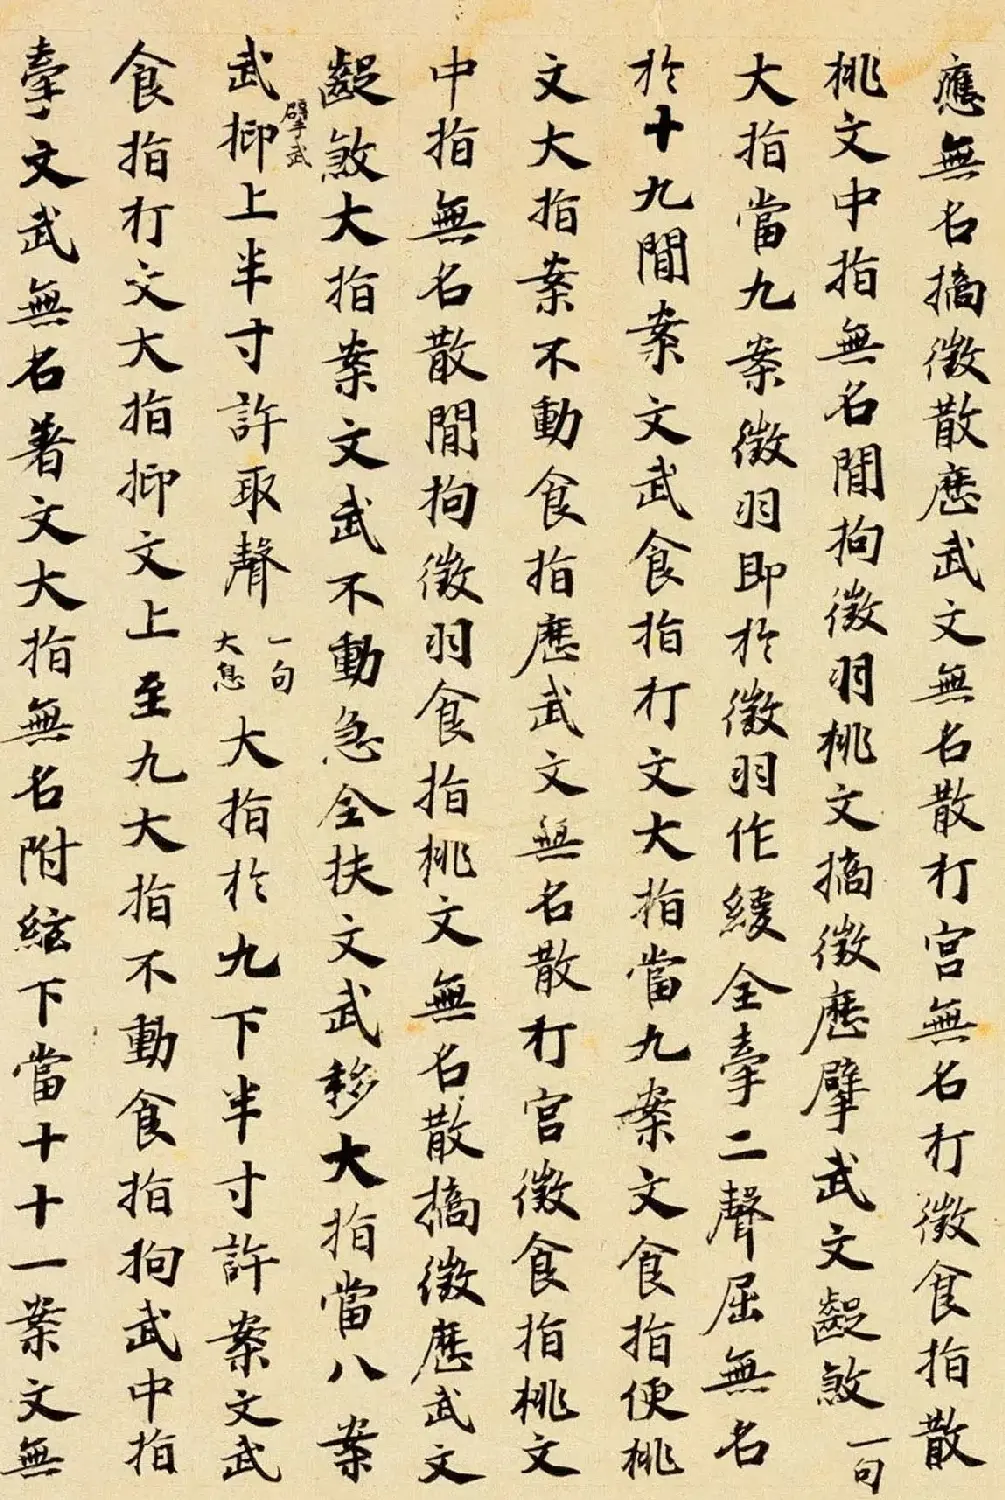 應無名擿徵散歷武文無名散打宮無名打徵食指散
桃文中指無名間拘徵羽桃文擿徵歷擘武文齪煞一句
大指當九案徵羽即於徵羽作緩全牽二聲屈無名
於十九間案文武食指打文大指當九案文食指便桃
文大指案不動食指歷武文無名散打宮徵食指桃文
中指無名散間拘徵羽食指桃文無名散擿徵歷武文
齪煞大指案文武不動急全扶文武移大指當八案
武擘武抑上半寸許取聲一句大息大指於九下半寸許案文武
食指打文大指抑文上至九大指不動食指拘武中指
牽文武無名著文大指無名附絃下當十十一案文無